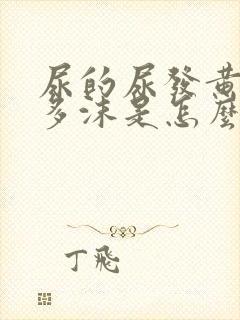 尿的尿發黃
多沫是怎麼
丁飛